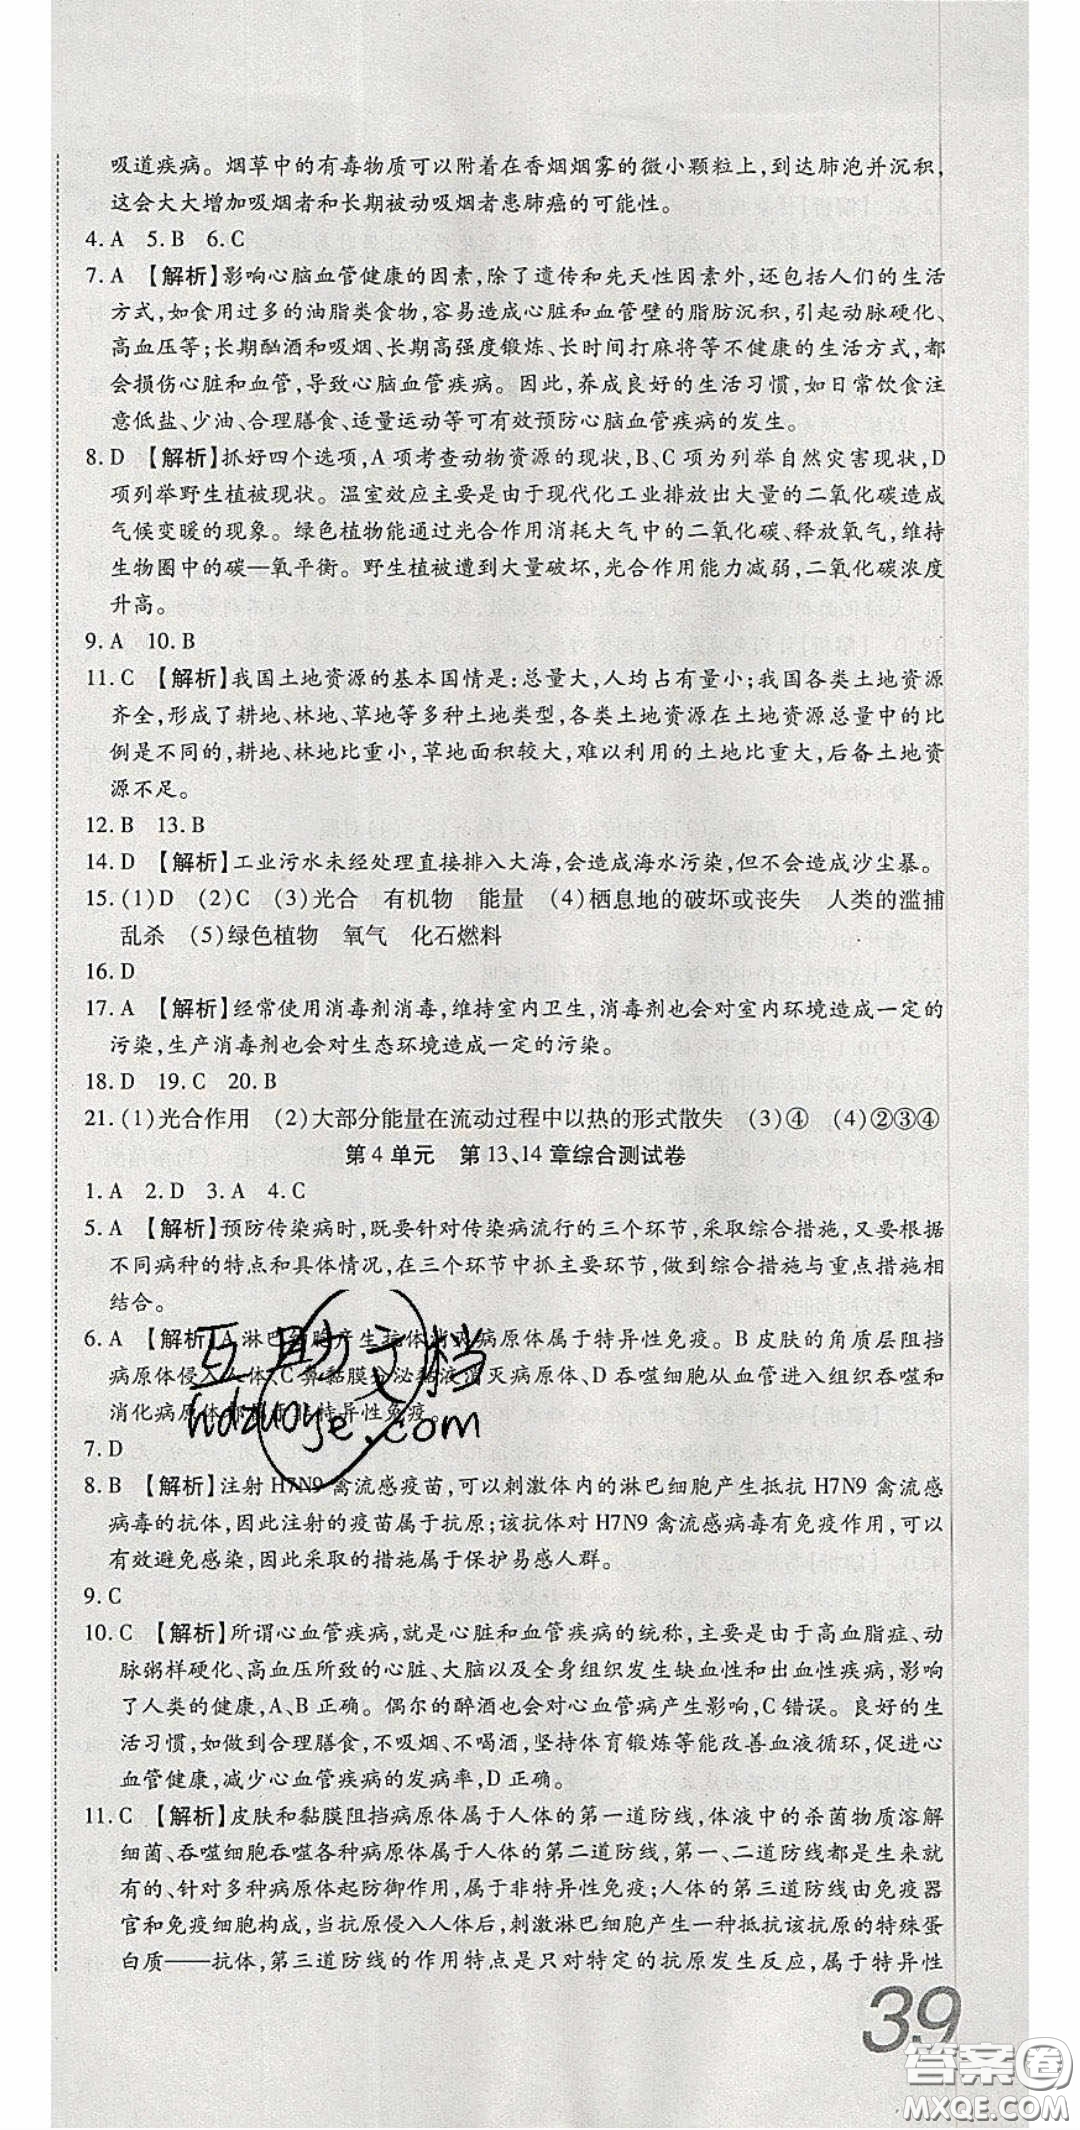 吸道疾病。烟草中的有毒物质可以附着在香烟烟雾的微小颗粒上,到达肺泡并沉积,
这会大大增加吸烟者和长期被动吸烟者患肺癌的可能性。
4. A 5. B 6. C
7. A 【解析】影响心脑血管健康的因素,除了遗传和先天性因素外,还包括人们的生活
方式,如食用过多的油脂类食物,容易造成心脏和血管壁的脂肪沉积,引起动脉硬化、
高血压等;长期酗酒和吸烟、长期高强度锻炼、长时间打麻将等不健康的生活方式,都
会损伤心脏和血管,导致心脑血管疾病。因此,养成良好的生活习惯,如日常饮食注
意低盐、少油、合理膳食、适量运动等可有效预防心脑血管疾病的发生。
8. D 【解析】抓好四个选项,A 项考查动物资源的现状,B、C 项为列举自然灾害现状,D
项列举野生植被现状。温室效应主要是由于现代化工业排放出大量的二氧化碳造成
气候变暖的现象。绿色植物能通过光合作用消耗大气中的二氧化碳、释放氧气,维持
生物圈中的碳—氧平衡。野生植被遭到大量破坏,光合作用能力减弱,二氧化碳浓度
升高。
9. A 10. B
11. C 【解析】我国土地资源的基本国情是:总量大,人均占有量小;我国各类土地资源
齐全,形成了耕地、林地、草地等多种土地类型,各类土地资源在土地资源总量中的比
例是不同的,耕地、林地比重小,草地面积较大,难以利用的土地比重大,后备土地资
源不足。
12. B 13. B
14. D 【解析】工业污水未经处理直接排入大海,会造成海水污染,但不会造成沙尘暴。
15. (1)D (2)C (3)光合 有机物 能量 (4)栖息地的破坏或丧失 人类的滥捕
乱杀 (5)绿色植物 氧气 化石燃料
16. D
17. A 【解析】经常使用消毒剂消毒,维持室内卫生,消毒剂也会对室内环境造成一定的
污染,生产消毒剂也会对生态环境造成一定的污染。
18. D 19. C 20. B
21. (1)光合作用 (2)大部分能量在流动过程中以热的形式散失 (3)④ (4)②③④
第 4 单元 第 13、14 章综合测试卷
1. A 2. D 3. A 4. C
5. A 【解析】预防传染病时,既要针对传染病流行的三个环节,采取综合措施,又要根据
不同病种的特点和具体情况,在三个环节中抓主要环节,做到综合措施与重点措施相
结合。
6. A 【解析】A 淋巴细胞产生抗体消灭病原体属于特异性免疫。B 皮肤的角质层阻挡
病原体侵入人体、C 鼻黏膜分泌黏液消灭病原体、D 吞噬细胞从血管进入组织吞噬和
消化病原体都属于非特异性免疫。
7. D
8. B 【解析】注射 H7N9 禽流感疫苗,可以刺激体内的淋巴细胞产生抵抗 H7N9 禽流感
病毒的抗体,因此注射的疫苗属于抗原;该抗体对 H7N9 禽流感病毒有免疫作用,可以
有效避免感染,因此采取的措施属于保护易感人群。
9. C
10. C 【解析】所谓心血管疾病,就是心脏和血管疾病的统称,主要是由于高血脂症、动
脉粥样硬化、高血压所致的心脏、大脑以及全身组织发生缺血性和出血性疾病,影响
了人类的健康,A、B 正确。偶尔的醉酒也会对心血管病产生影响,C 错误。良好的生
活习惯,如做到合理膳食,不吸烟、不喝酒,坚持体育锻炼等能改善血液循环,促进心
血管健康,减少心血管疾病的发病率,D 正确。
11. C 【解析】皮肤和黏膜阻挡病原体属于人体的第一道防线,体液中的杀菌物质溶解
细菌、吞噬细胞吞噬各种病原体属于人体的第二道防线,第一、二道防线都是生来就
有的、针对多种病原体起防御作用,属于非特异性免疫;人体的第三道防线由免疫器
官和免疫细胞构成,当抗原侵入人体后,刺激淋巴细胞产生一种抵抗该抗原的特殊蛋
白质——抗体,第三道防线的作用特点是只对特定的抗原发生反应,属于特异性
互助文档
hdzuoye.com
39
答案圈
MXQE.COM